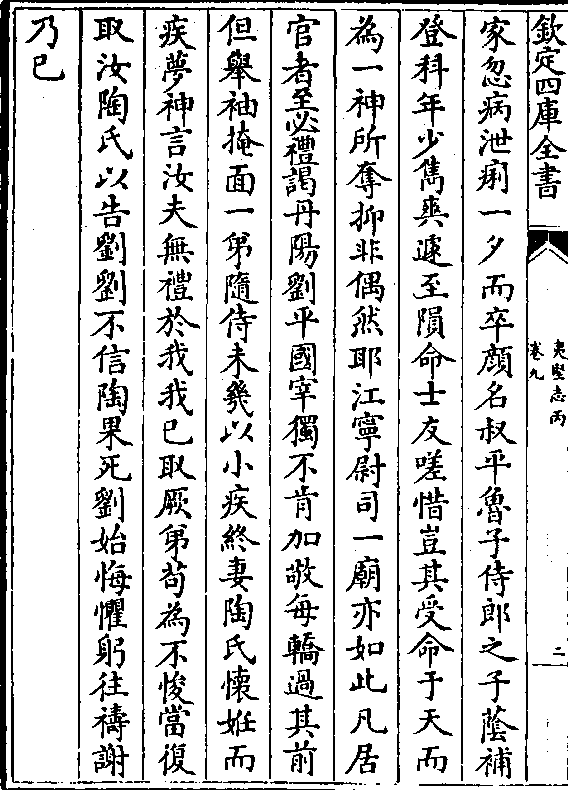 欽定四庫全書
夷堅志丙
卷九
二
家忽病泄痢一夕而卒顔名叔平魯子侍郎之子䕃補
登科年少雋爽遽至隕命士友嗟惜豈其受命于天而
為一神所奪抑非偶然耶江寧尉司一廟亦如此凡居
官者至必禮謁丹陽劉平國宰獨不肯加敬每轎過其前
但舉袖掩面一弟隨侍未幾以小疾終妻陶氏懷姙而
疾夢神言汝夫無禮於我我已取厥弟茍為不悛當復
取汝陶氏以告劉劉不信陶果死劉始悔懼躬往禱謝
乃已